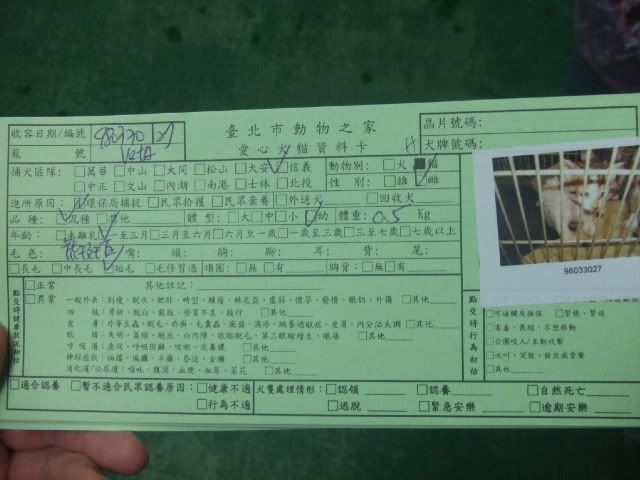 臺北市動物之家
愛心犬貓資料卡
收容日期/編號 980330 27
籠 號
晶片號碼:
犬牌號碼:
捕犬區隊: □萬華 □中山 □大同 □松山 □大安 信義
□中正 □文山 □內湖 □南港 □士林 □北投
動物別: □犬 ■貓
性 別: □雄 雌
進所原因: 環保局捕捉 □民眾拾獲 □民眾棄養 □外送犬 □回收犬
品 種: 混種 □其他 體 型: □大 □中 □小 幼 體重: 0.5 Kg
年齡: □未離乳 一至三月 □三月至六月 □六月至一歲 □一歲至三歲 □三至七歲 □七歲以上
毛 色: 嘴: 頭: 胸: 腳: 耳: 背: 尾:
□長毛 □中長毛 短毛 □毛修剪過 項圈: □無 □有 胸背: □無 □有
98033027
點交時健康狀況初估
□正常 其他註記:
□異常 一般外表: 刻瘦, 脫水, 肥胖, 畸型, 腫瘤, 林尼亞, 虛弱, 懷孕, 發情, 眼奶, 外傷 □其他
四 肢: 骨折, 脫臼, 截肢, 發育不良, 跛行 □其他
皮 膚: 外寄生蟲, 脫毛, 疥癬, 毛囊蟲, 黴菌, 濕疹, 跳蚤過敏症, 皮屑, 內分泌失調 □其他
眼 睛: 失明, 萎縮, 脫出, 白內障, 眼瞼脫毛, 第三眼瞼增生, 眼屎 □其他
呼 吸 道: 急促, 呼吸困難, 咳嗽, 流鼻膿 □其他
神經症狀: 抽搐, 偏癱, 半癱, 昏迷, 全癱 □其他
消化道/泌尿道: 嘔吐, 腹瀉, 血便, 血尿, 菜花 □其他
點交時行為初估
□可碰觸及撫摸 □緊張, 緊迫
□害羞, 畏縮, 不想移動
□企圖咬人/主動攻擊
□吠叫, 哭號, 發出威脅聲
□其他
□適合認養 □暫不適合民眾認養原因: □健康不適
□行為不適
犬隻處理情形: □認領 □認養 □自然死亡
□逃脫 □緊急安樂 □逾期安樂